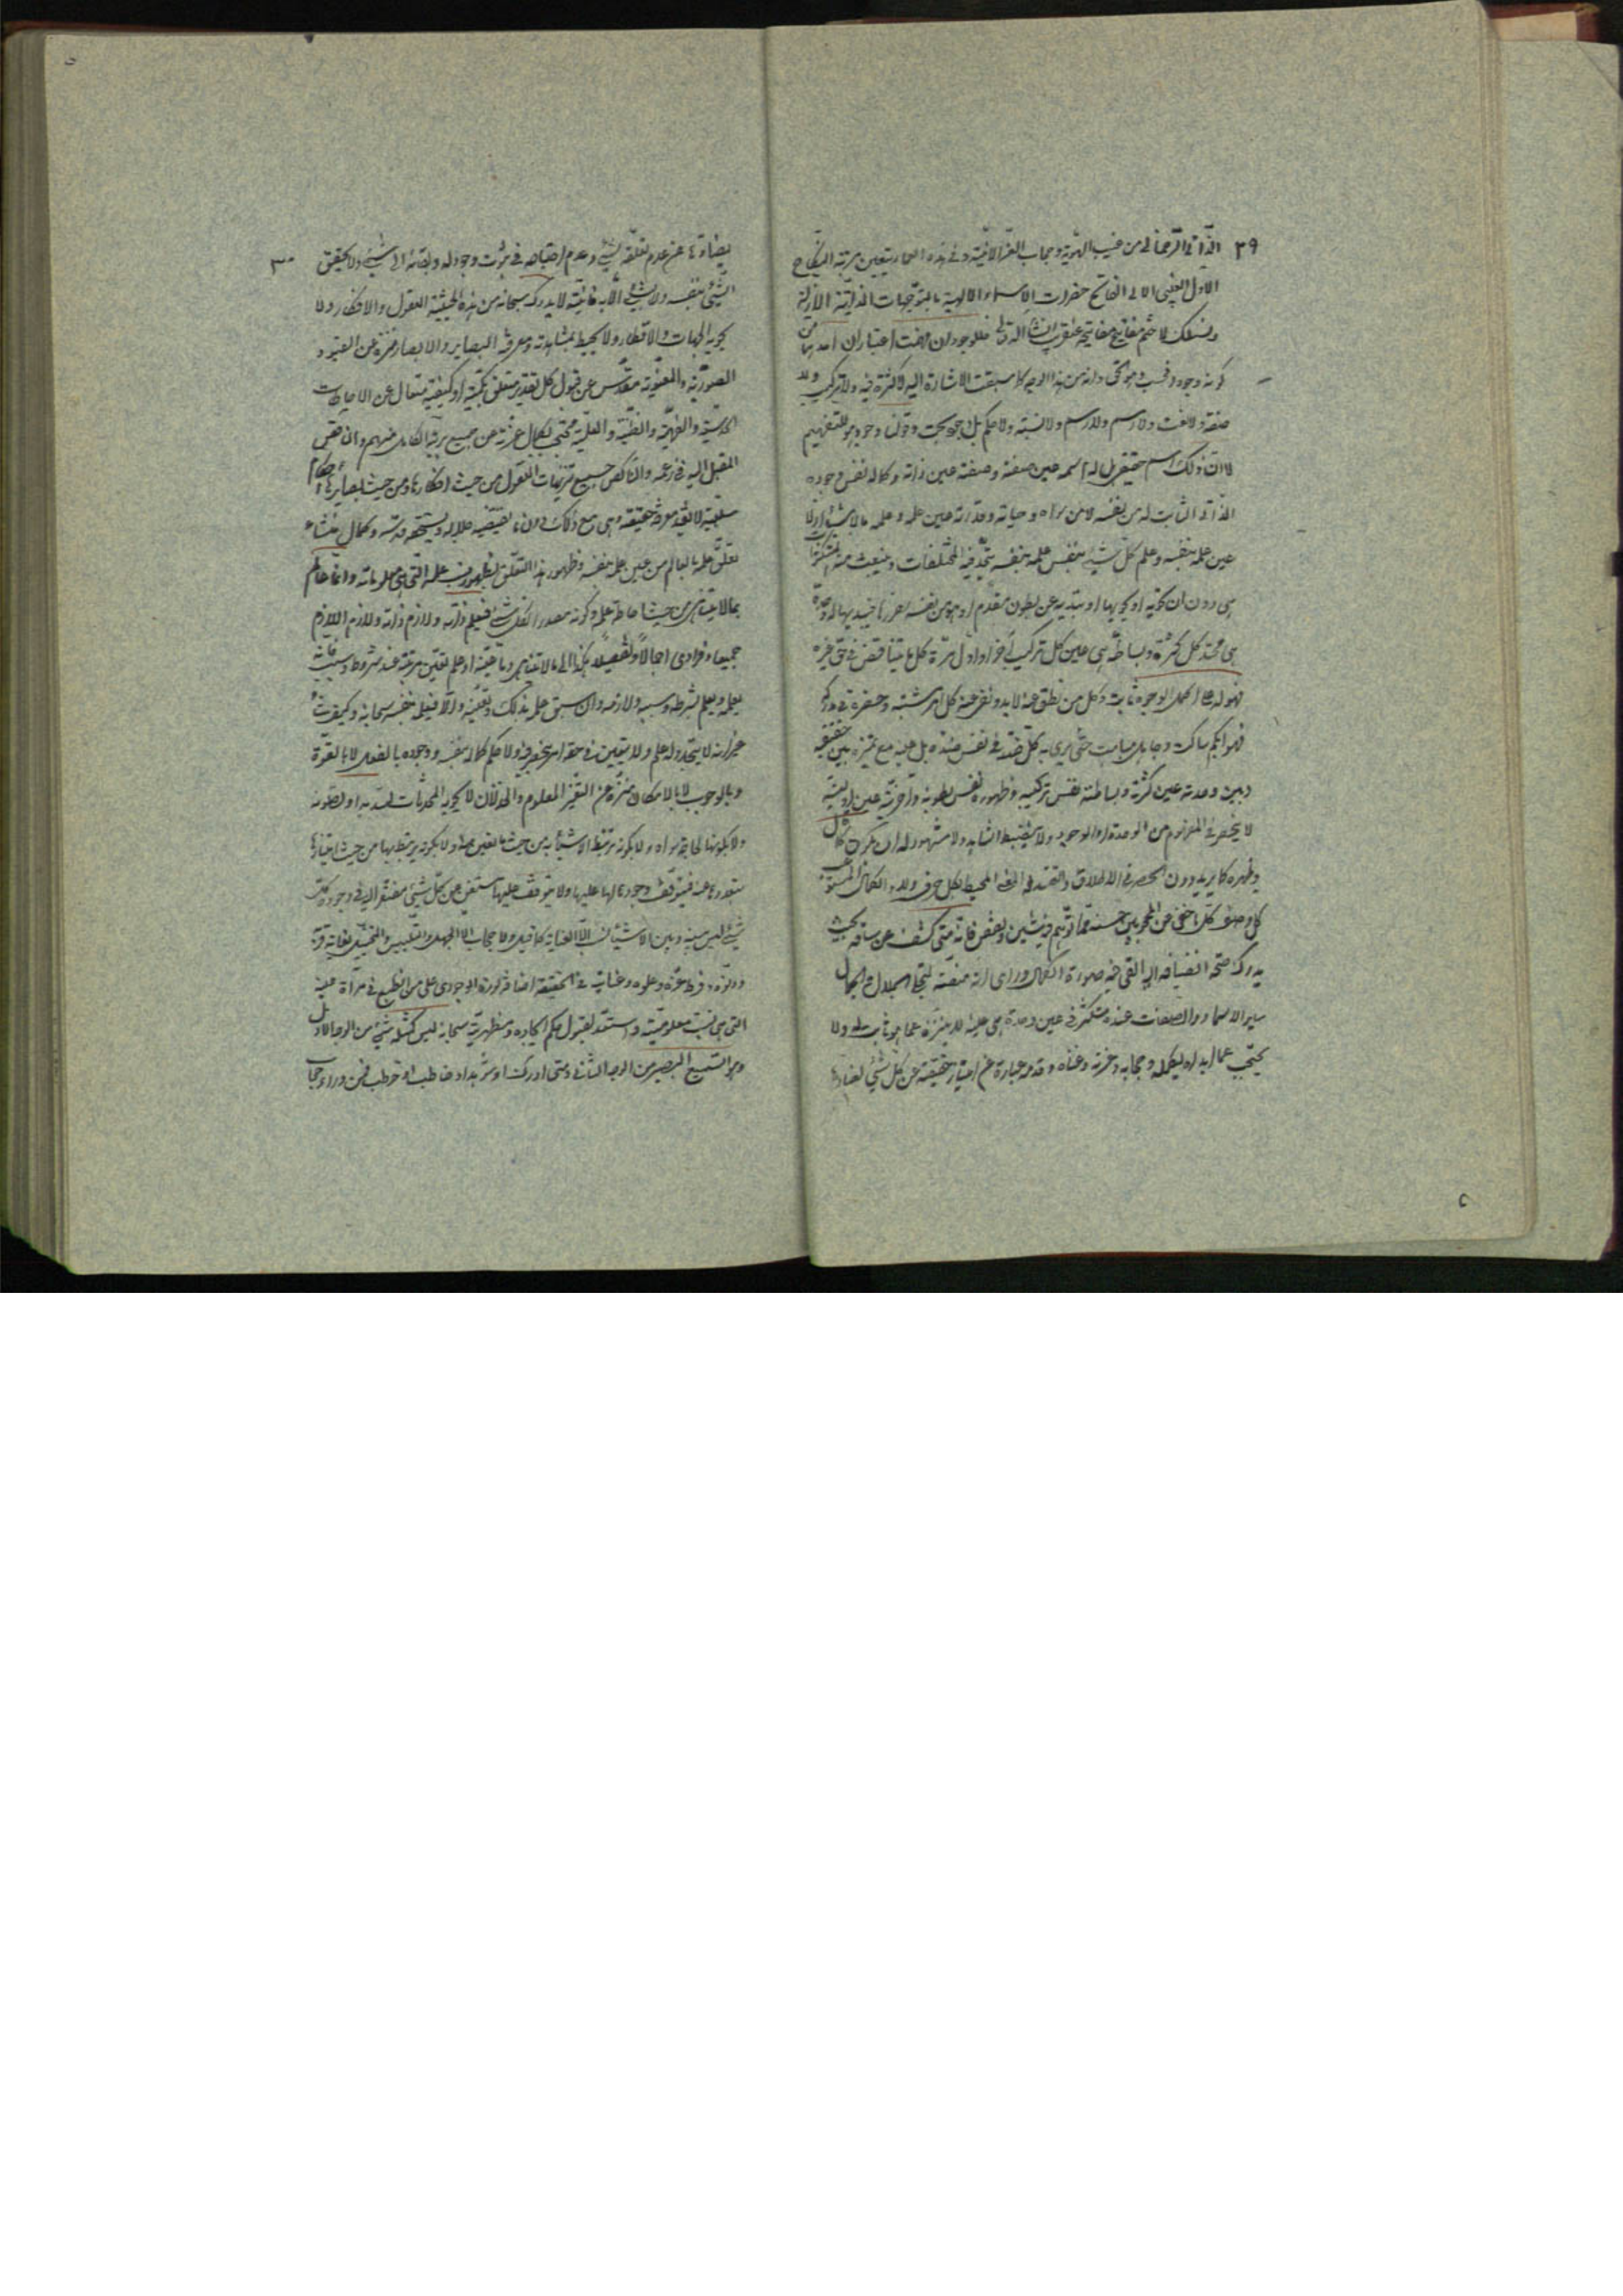 ٢٩ الذاتى الرحمانى من غيب الهوية وحجاب العز الانية وفى هذه العماء يتعين مرتبة النكاح
الاول الغيبى الازلى الفاتح حضرات الاسماء الالهية بالتوجهات الذاتية الازلية
وسنفك لك ختم مفتاح مفاتيحه عنقريب انشاء الله تعالى فللوجود ان فهمت اعتباران احدهما من
كونه وجودا فحسب وهو الحق وانه من هذا الوجه كما سبقت الاشارة اليه لا كثرة فيه ولا تركيب ولا
صفة ولا نعت ولا اسم ولا رسم ولا نسبة ولا حكم بل وجود بحت وقولنا وجود هو للتفهيم
لا ان ذلك اسم حقيقى له بل اسمه عين صفته وصفته عين ذاته وكماله نفس وجوده
الذاتى الثابت له من نفسه لا من سواه وحياته وقدرته عين علمه وعلمه بالاشياء ازلا
عين علمه بنفسه وعلم كل شىء بنفس علمه بنفسه يتحد فيه المختلفات وينبعث منه المتكثرات
هى دون ان تحويه او يحويها او تبديه عن بطون متقدم او هو من نفسه يبرزها فيبديها له وحدة
هى محتد كل كثرة وبساطة هى عين كل تركيب آخرا واول مرة كل ما يتناقض فى حق غيره
فهو له على اكمل الوجوه ثابت وكل من نطق عنه لا به ونفى عنه كل امر مشتبه وحصره فى مدركه
فهو ابكم ساكت وجاهل مباهت حتى يرى به كل ضد فى نفس ضده بل عينه مع تميزه بين حقيقته
وبين وحدته عين كثرته وبساطته نفس تركيبه وظهوره نفس بطونه وآخريته عين اوليته
لا ينحصر فى المفهوم من الوحدة او الوجود ولا ينضبط لشاهد ولا مشهود له ان يكون كما قال
ويظهر كما يريد دون الحصر فى الاطلاق والتقيد له المعنى المحيط بكل حرف وله الكمال المستوعب
كل وصف كل ما خفى عن المحجوبين حسنه مما توهم فيه شين او نقص فانه متى كشف عن ساقه بحيث
يدرك صحة انضيافه اليه الفى فيه صورة الكمال وراى انه منصة لتجلى الجلال والجمال
ساير الاسماء والصفات عنده متكثر فى عين وحدة هى عينه لا يتنزه عما هو ثابت له ولا
يحتجب عما ابداه ليكمله وحجابه وعزته وغناه وقدسه عبارة عن امتياز حقيقته عن كل شىء يضادها
يضادها عن عدم تعلقه بشىء وعدم احتياجه فى ثبوت وجوده له وبقائه الى شىء ولا تحقق ٣٠
لشىء بنفسه ولا بشىء الا به فانيته لا يدركه سبحانه من هذه الحيثية العقول والافكار ولا
تحويه الجهات والاقطار ولا يحيط بمشاهدته ومعرفته البصاير والابصار منزه عن القيود
الصورية والمعنوية مقدس عن قبول كل تقدير متعلق بكمية او كيفية متعال عن الاحاطات
الحدسية والفهمية والظنية والعلمية محتجب بكمال عزته عن جميع بريته الكامل منهم والناقص
المقبل اليه فى زعمه والناكص جميع تنزيهات العقول من حيث افكارها ومن حيث بصايرها احكام
سلبية لا تفيد معرفة حقيقته وهى مع ذلك دون ما يقتضيه جلاله ويستحقه قدسه وكماله منشاء
تعلق علمه بالعالم من عين علمه بنفسه وظهور هذا التعلق بظهور نسب علمه التى هى معلوماته وانه عالم
بما لا يتناهى من حيث احاطة علمه وكونه مصدرا لكل شىء فيعلم ذاته ولازم ذاته ولازم اللازم
جميعا وفرادى اجمالا وتفصيلا هكذا الى ما لا يتناهى وما عينه او علم تعين مرتبته عند شرط او سبب فانه
يعلمه ويعلم شرطه وسببه ولازمه وان سبق علمه بذلك وتعينه والا فيعلمه بنفسه سبحانه وكيف شاء
غير انه لا يتجدد له علم ولا يتعين فى حقه امر ينحصر فيه ولا حكم كماله بنفسه ووجوده بالفعل لا بالقوة
وبالوجوب لا بالامكان منزه عن التغير المعلوم والحدثان لا تحويه المحدثات لتبديه او لتصونه
ولا يكونها لحاجة سواه ولا يكونه يرتبط الاشياء به من حيث ما تعين منه ولا يكون يرتبط بها من حيث امتيازها
بتعددها عنه فيتوقف وجودها لها عليها ولا يتوقف عليها مستغن عن كل شىء مفتقر اليه فى وجوده كل
شىء ليس بينه وبين الاشياء نسب الا العناية كما قيل ولا حجاب الا الجهل والتلبيس والتخييل لغاية قربه
ودنوه وفرط عزته وعلوه وعنايته فى الحقيقة افاضة نوره الوجودى على من انطبع فى مرآة عينه
التى هى نسبة معلوميته واستعد لقبول حكم ايجاده ومظهريته سبحانه ليس كمثله شىء من الوجه الاول
وهو السميع البصير من الوجه الثانى ومتى ادرك او شوهد او خاطب او خوطب فمن وراء حجاب